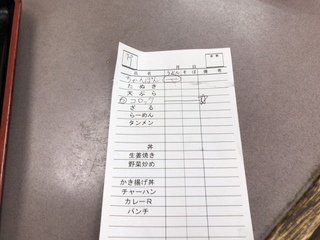 月 日
品名 うどん そば 備考
ちゃんぽん 一
たぬき
天ぷら
コロッケ
ざる
らーめん
タンメン
丼
生姜焼き
野菜炒め
かき揚げ丼
チャーハン
カレーR
パンチ